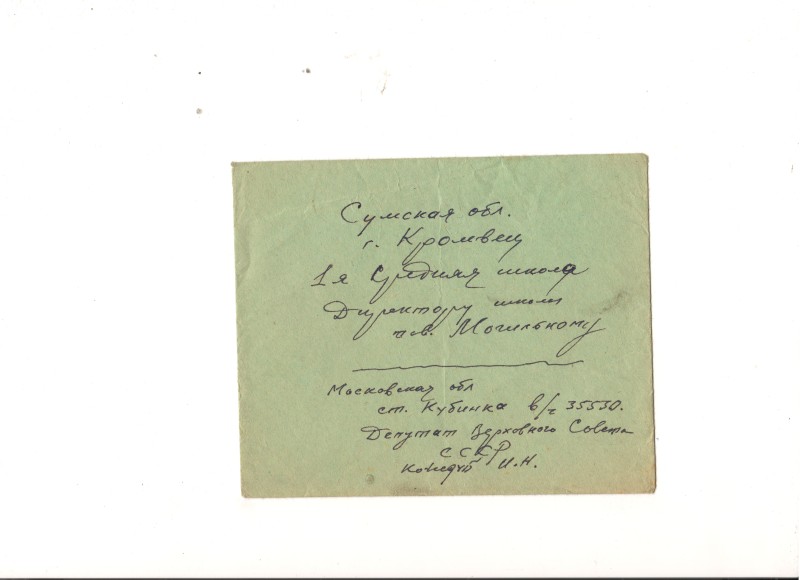 Сумская обл.
г. Кромвец
1я Средняя школа
Директору школы
тов. Могильному
Московская обл
ст. Кубинка в/ч 35530.
Депутат Верховного Совета
СССР
Кожедуб И.Н.